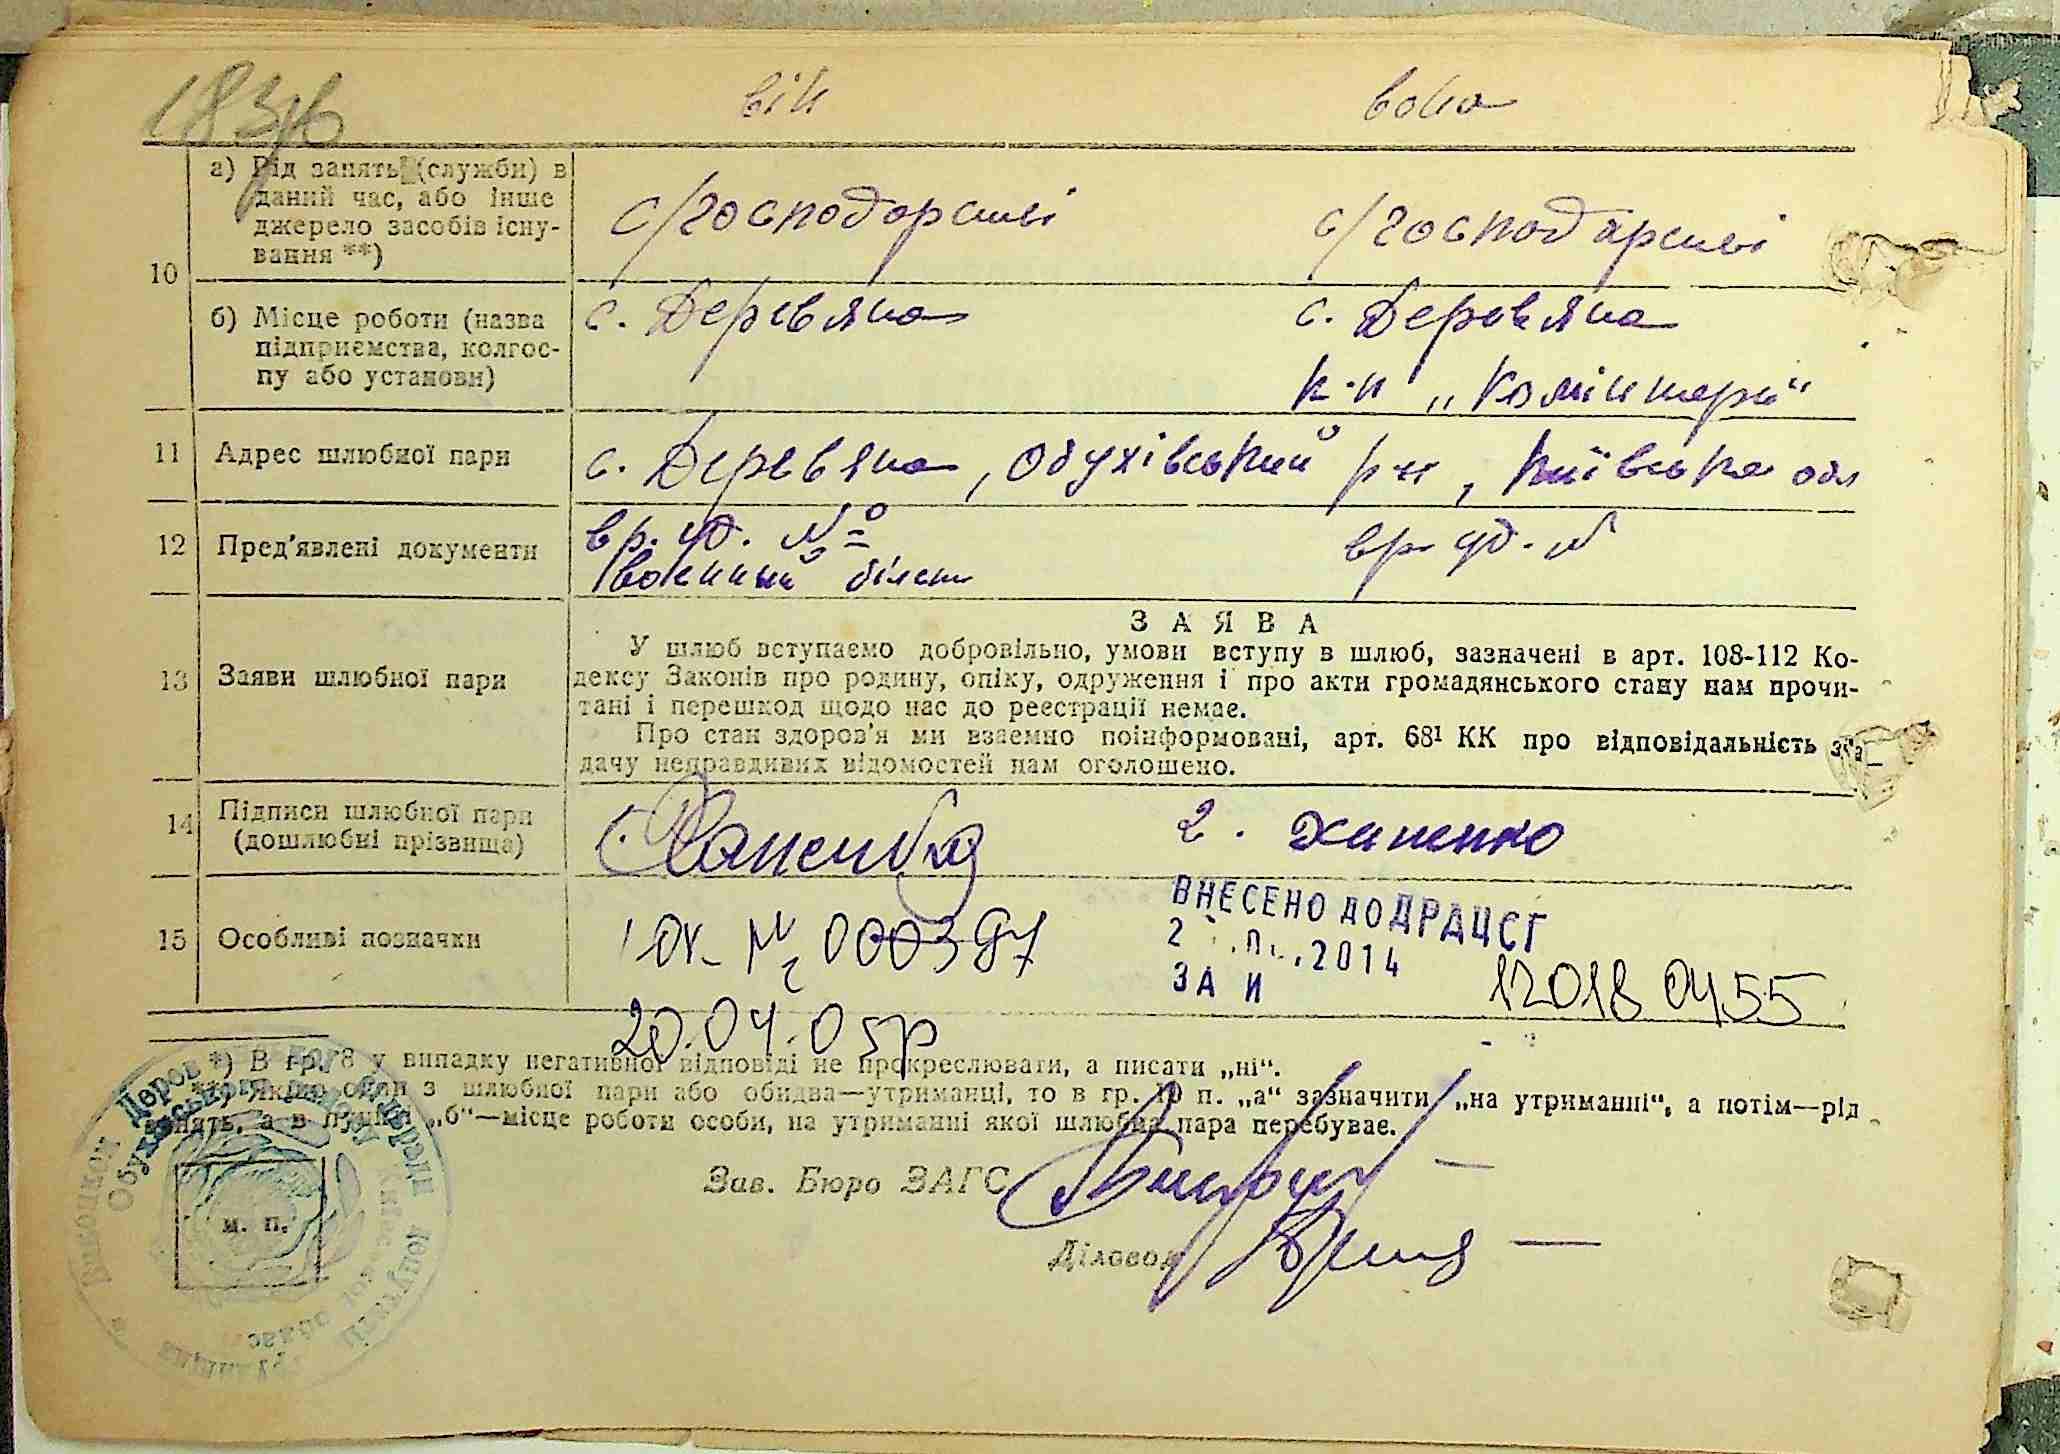 він вона
10
а) Рід занять (служби) в
даний час, або інше
джерело засобів існу-
вання **)
с/господарстві с/господарстві
б) Місце роботи (назва
підприємства, колгос-
пу або установи)
с. Деревяна с. Деревяна
к-п „Комінтерн“
11 Адрес шлюбної пари с. Деревяна, Обухівський р-н, Київська обл
12 Пред'явлені документи вр. уд. № вр. уд. №
Военний білет
13 Заяви шлюбної пари
ЗАЯВА
У шлюб вступаємо добровільно, умови вступу в шлюб, зазначені в арт. 108-112 Ко-
дексу Законів про родину, опіку, одруження і про акти громадянського стану нам прочи-
тані і перешкод щодо нас до реєстрації немає.
Про стан здоров'я ми взаємно поінформовані, арт. 68¹ КК про відповідальність за
дачу неправдивих відомостей нам оголошено.
14 Підписи шлюбної пари
(дошлюбні прізвища)
15 Особливі позначки
№ 000397
20.04.05р
ВНЕСЕНО ДО ДРАЦСГ
2 .2014
ЗА И 12018 0455
*) В гр. 8 у випадку негативної відповіді не прокреслювати, а писати „ні“.
**) Якщо один з шлюбної пари або обидва—утриманці, то в гр. 10 п. „а“ зазначити „на утриманні“, а потім—рід
занять, а в пункті „б“—місце роботи особи, на утриманні якої шлюбна пара перебуває.
Зав. Бюро ЗАГС
Діловод
м. п.